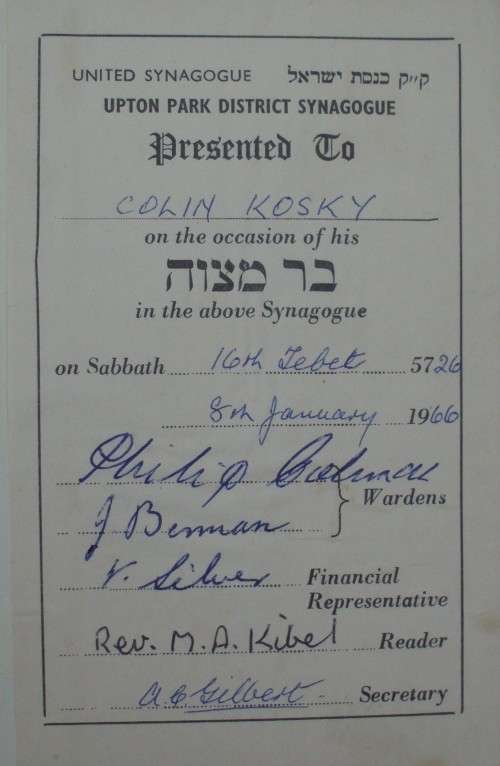 UNITED SYNAGOGUE ק״ק כנסת ישראל
UPTON PARK DISTRICT SYNAGOGUE
Presented To
COLIN KOSKY
on the occasion of his
בר מצוה
in the above Synagogue
on Sabbath 16th Tebet 5726
8th January 1966
Philip
J Berman Wardens
V. Silver Financial
Representative
Rev. M. A. Kibel Reader
A C Gilbert Secretary